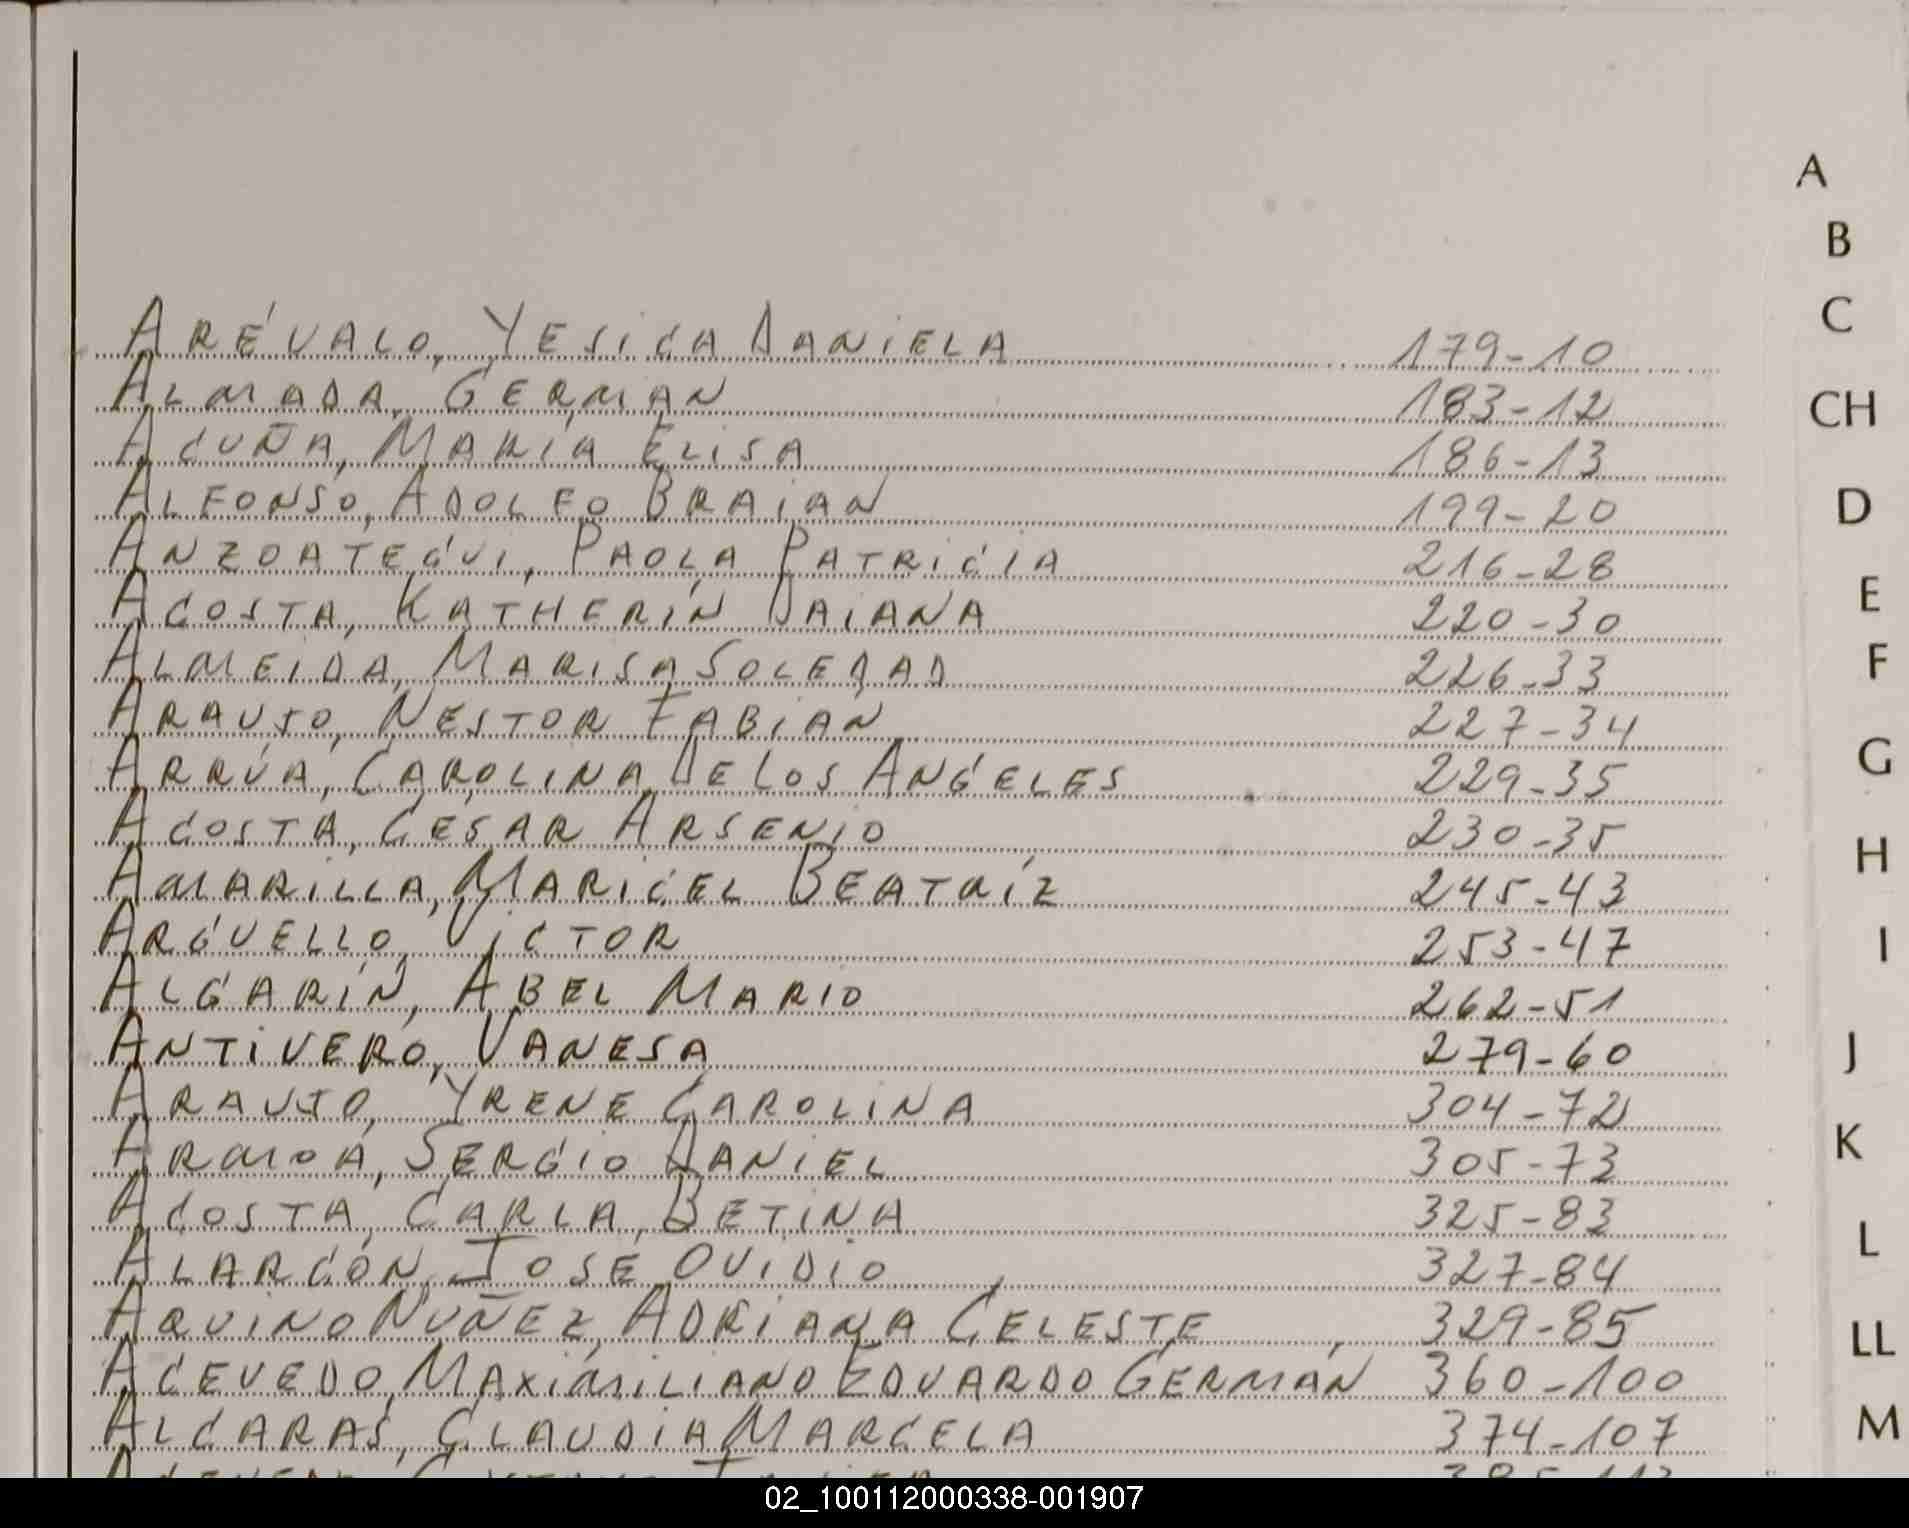 ARÉVALO, YESICA DANIELA 179-10
ALMADA, GERMAN 183-12
ACUÑA, MARÍA ELISA 186-13
ALFONSO, ADOLFO BRAIAN 199-20
ANZOATEGUI, PAOLA PATRICIA 216-28
ACOSTA, KATHERÍN DAIANA 220-30
ALMEIDA, MARISA SOLEDAD 226-33
ARAUJO, NESTOR FABIÁN 227-34
ARRÚA, CAROLINA DE LOS ANGELES 229-35
ACOSTA, CESAR ARSENIO 230-35
AMARILLA, MARICEL BEATRÍZ 245-43
ARGUELLO, VICTOR 253-47
ALGARÍN, ABEL MARIO 262-51
ANTIVERO, VANESA 279-60
ARAUJO, YRENE CAROLINA 304-72
ARMOA, SERGIO DANIEL 305-73
ACOSTA, CARLA BETINA 325-83
ALARCÓN, JOSE OVIDIO 327-84
AQUINO NUÑEZ, ADRIANA CELESTE 329-85
ACEVEDO, MAXIMILIANO EDUARDO GERMÁN 360-100
ALCARAS, CLAUDIA MARCELA 374-107
A
B
C
CH
D
E
F
G
H
I
J
K
L
LL
M
02_100112000338-001907